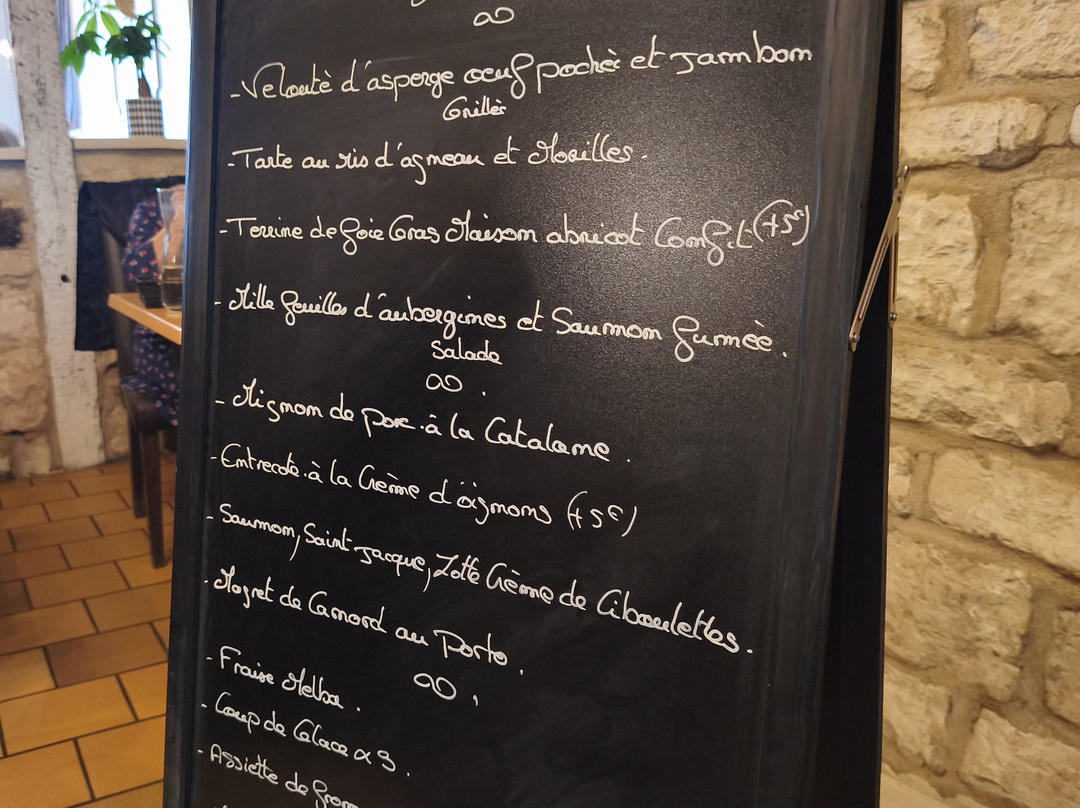 -Velouté d'asperge oeuf pochèr et Jambon
Grillèr
-Tarte au ris d'agneau et Morilles.
-Terrine de foie Gras Maison abricot Confit (+5€)
- Mille feuilles d'aubergines et Saumon fumèe.
Salade
- Mignon de porc à la Catalane.
-Entrecote à la Crème d'oignons (+5€)
- Saumon, Saint-Jacque, Lotte Crème de Ciboulettes.
- Magret de Canard au Porto.
- Fraise Melba.
- Coup de Glace x 3.
- Assiette de from